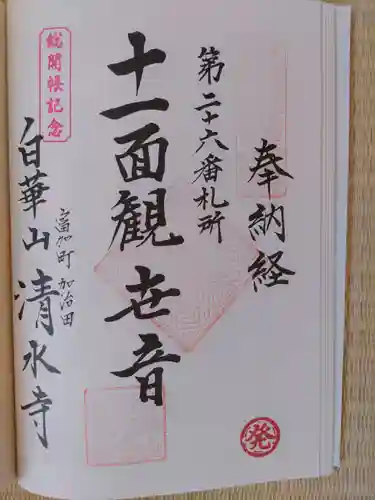 奉納経
第二十六番札所
十一面観世音
総開帳記念
富加町 加治田
白華山清水寺
発